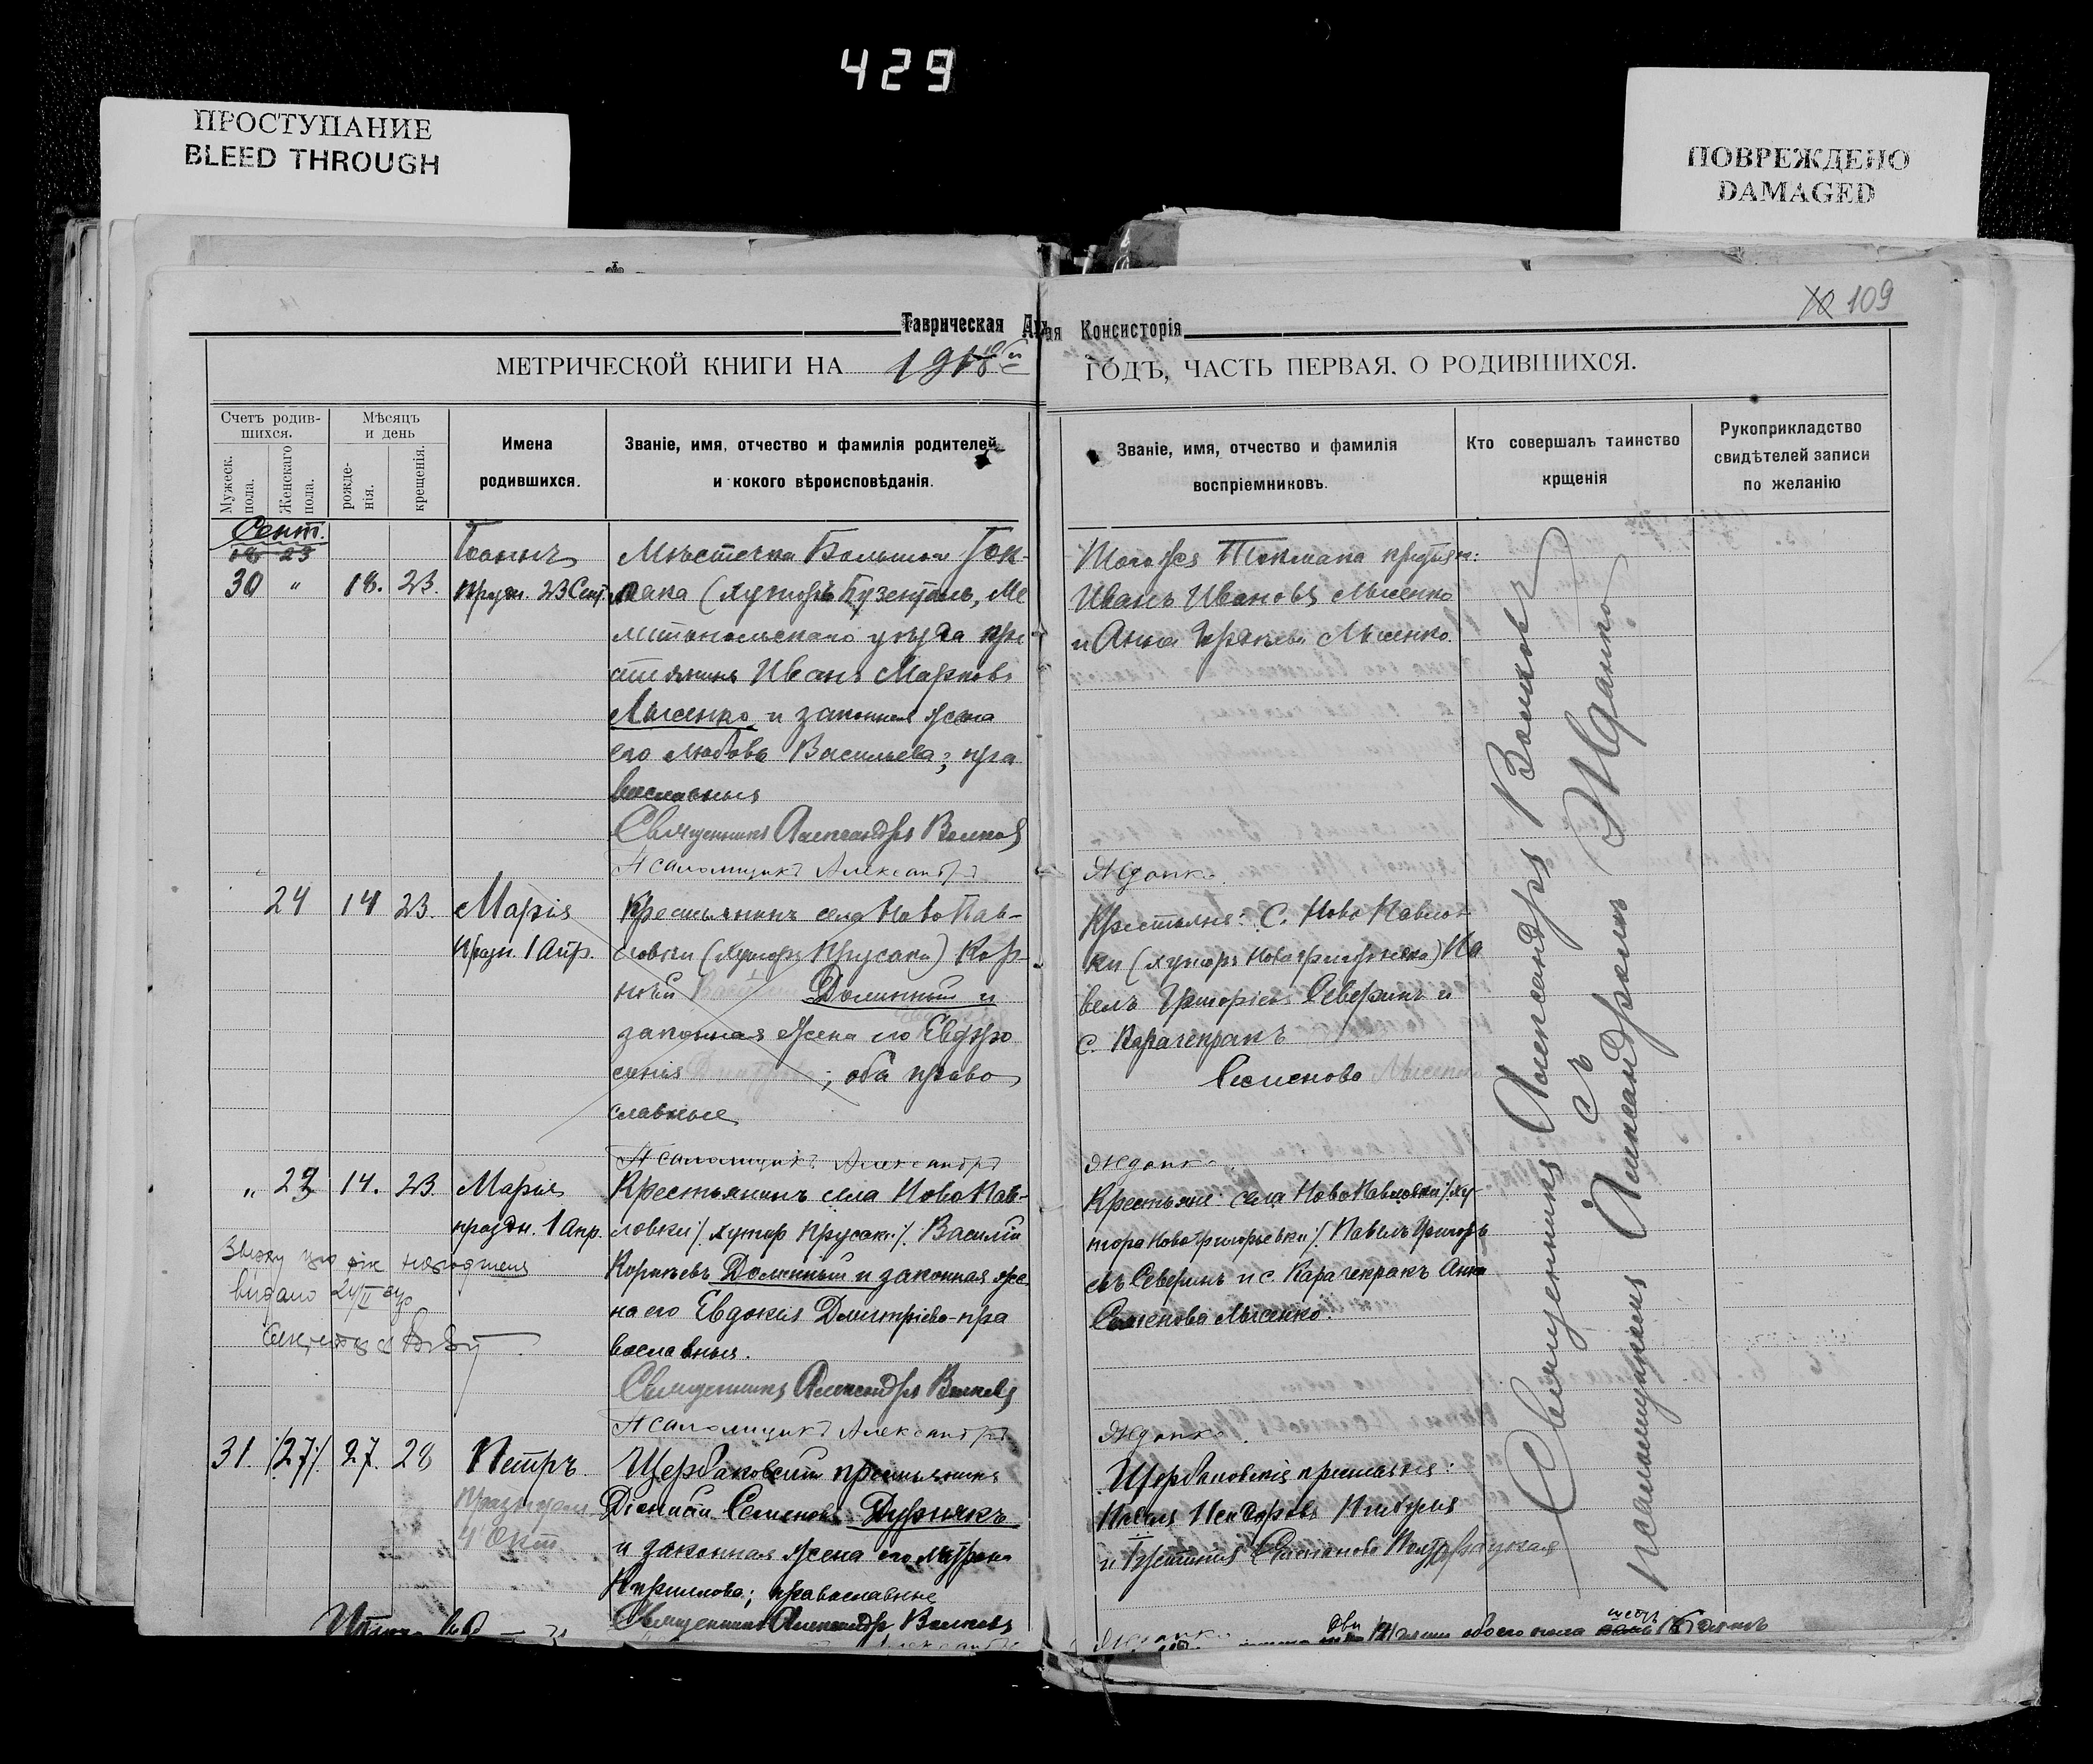 429
ПРОСТУПАНИЕ
BLEED THROUGH
ПОВРЕЖДЕНО
DAMAGED
109
Таврическая
Консисторія
МЕТРИЧЕСКОЙ КНИГИ НА
ГОДЪ, ЧАСТЬ ПЕРВАЯ, О РОДИВШИХСЯ.
Счетъ родив-
шихся.
Мужеск.
пола.
Женскаго
пола.
Мѣсяцъ
и день
рожде-
нія.
крещенія.
Имена
родившихся.
Званіе, имя, отчество и фамилія родителей
и кокого вѣроисповѣданія.
Званіе, имя, отчество и фамилія
воспріемниковъ.
Кто совершалъ таинство
крщенія
Рукоприкладство
свидѣтелей записи
по желанію
Сент.
18 23
30 " 18. 23.
Іоаннъ
празн. 23 Сент.
Мѣстечка Большой Ток-
мака (хуторъ Кузенталь, Ме
литопольскаго уѣзда кре
стьянинъ Иванъ Марковъ
Лысенко и законная жена
его Любовь Васильева; пра
вославныя
Священникъ Александръ Волковъ
Псаломщикъ Александръ
Жданко.
Того же Токмака крестьян:
Иванъ Ивановъ Лысенко
и Анна Лысенко.
24 14 23.
Марія
празн. 1 Апр.
Крестьянинъ села Ново Пав-
ловки (хуторъ Прусаки) Кор-
ній Долинный и
законная жена его Евфро
синія ; оба право
славные
Псаломщикъ Александръ
Жданко.
Крестьяне: С. Ново Павлов
ки (хуторъ Новогригорьевка) Па
велъ Григорьевъ Северинъ и
с. Карачекракъ
Семенова Лысенко
" 23 14. 23.
Марія
праздн. 1 Апр.
Крестьянинъ села НовоПав-
ловки /. хутор Прусаки /. Василій
Корнѣевъ Долинный и законная же
на его Евдокія Димитріева пра
вославныя.
Священникъ Александръ Волковъ
Псаломщикъ Александръ
Жданко.
Крестьяне: села НовоПавловки /. ху
тора Новогригорьевки /. Павелъ Григорь
евъ Северинъ и с. Карачекракъ Анна
Семенова Лысенко.
видано 24/II
31. /27/. 27. 28
Петръ.
4 Окт
Щербаковскій крестьянинъ
Діонисій Семеновъ Дурнякъ
и законная жена его Матрона
Кириллова; православные
Священникъ Александръ Волковъ
Щербановскія крестьяне:
Жданко
Священникъ Александръ Волковъ
съ
Псаломщикомъ Александромъ Жданко